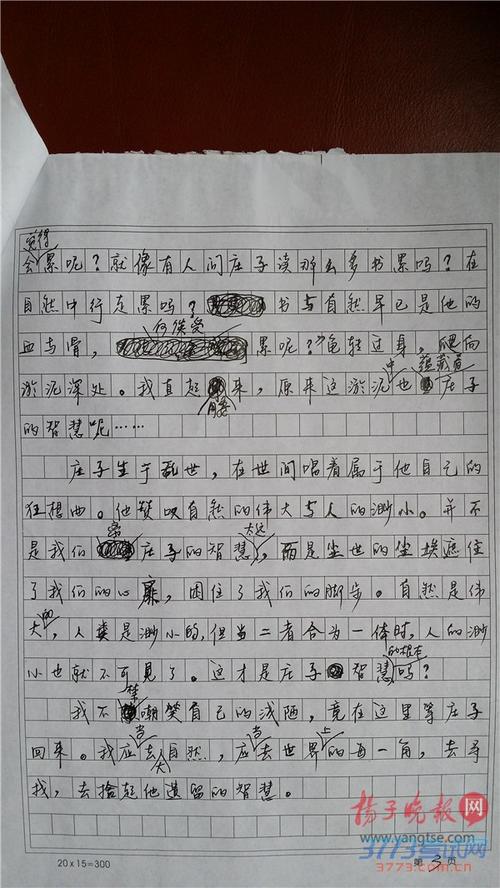 会觉得累呢？就像有人问庄子读那么多书累吗？在
自然中行走累吗？书与自然早已是他的
血与骨，何谈受累呢？”龟转过身，爬向
淤泥深处。我直起腰来，原来这淤泥中也蕴藏着庄子
的智慧呢……
庄子生于乱世，在世间唱着属于他自己的
狂想曲。他赞叹自然的伟大与人的渺小。并不
是我们离庄子的智慧太远，而是尘世的尘埃遮住
了我们的心扉，困住了我们的脚步。自然是伟
大的，人类是渺小的，但当二者合为一体时，人的渺
小也就不可见了。这才是庄子智慧的根本吗？
我不禁嘲笑自己的浅陋，竟在这里等庄子
回来。我应当去大自然，应当去世界上的每一角，去寻
找，去拾起他遗留的智慧。
扬子晚报网
www.yangtse.com
20×15=300
第3页
3773考试网
3773.com.cn